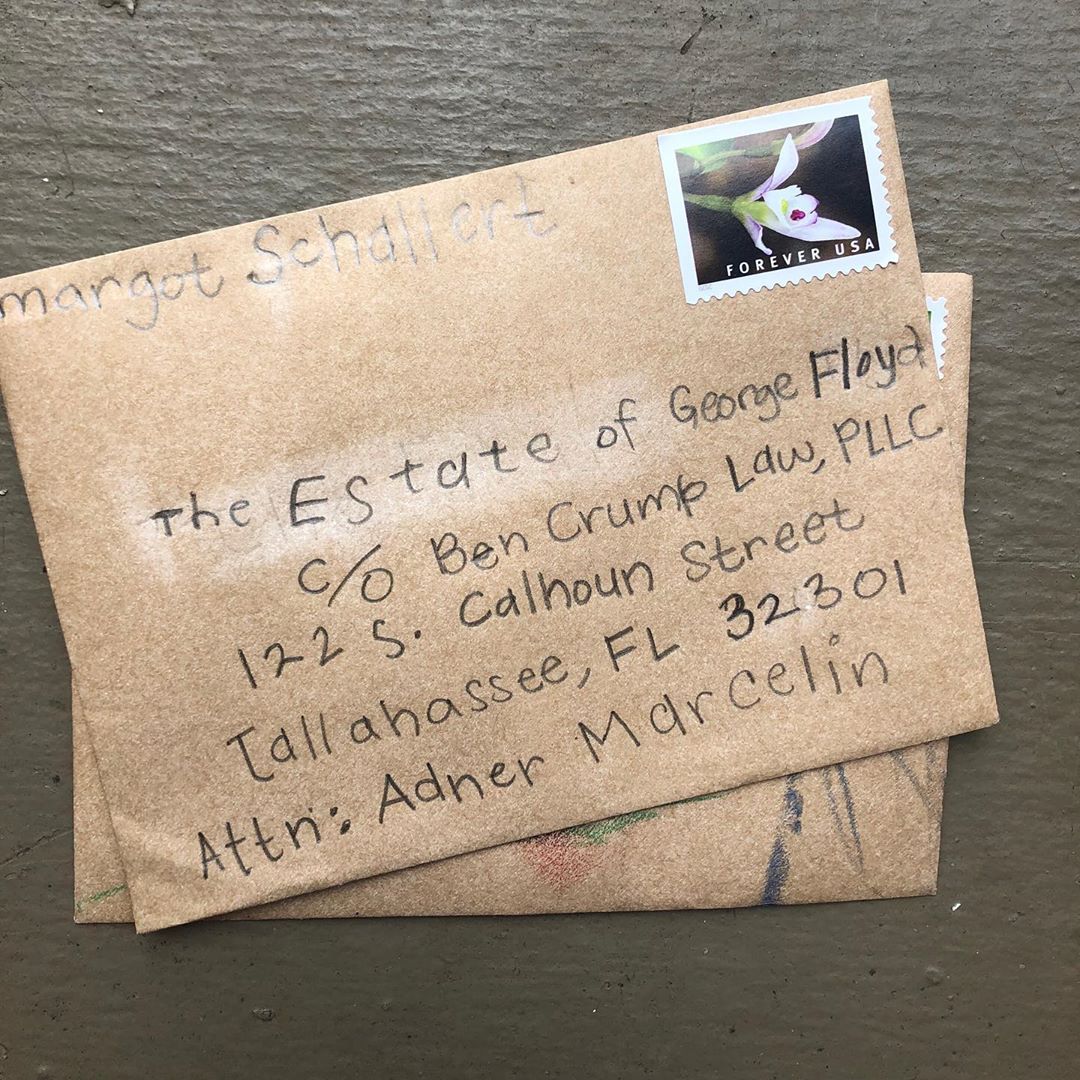 margot Schallert
FOREVER USA
The Estate of George Floyd
c/o Ben Crump Law, PLLC
122 S. Calhoun Street
Tallahassee, FL 32301
Attn: Adner Marcelin